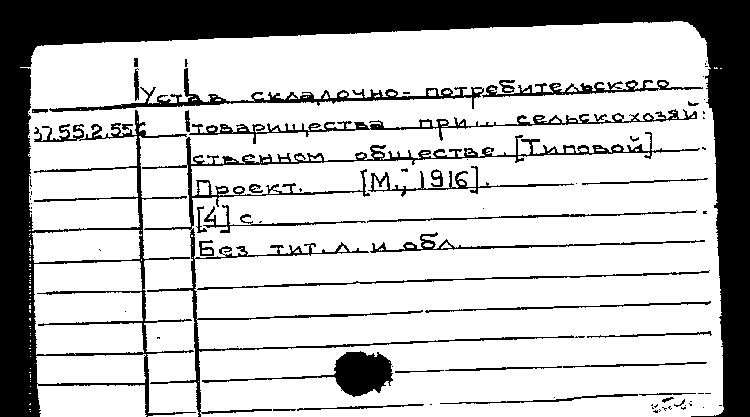 Устав складочно-потребительского
37.55.2.556 товарищества при... сельскохозяй-
ственном обществе. [Типовой].
Проект. [М., 1916].
[4] с.
Без тит. л. и обл.